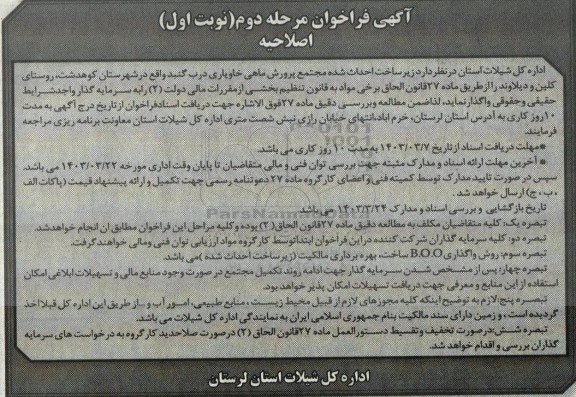 آگهی فراخوان مرحله دوم(نوبت اول)
اصلاحیه
اداره کل شیلات استان درنظر دارد زیرساخت احداث شده مجتمع پرورش ماهی خاویاری درب گنبد واقع در شهرستان کوهدشت، روستای
کلین و دیلاوند را از طریق ماده ۲۷قانون الحاق برخی مواد به قانون تنظیم بخشی از مقررات مالی دولت (۲) رابه سرمایه گذار واجدشرایط
حقیقی و حقوقی واگذار نماید، لذاضمن مطالعه وبررسی دقیق ماده ۲۷فوق الاشاره جهت دریافت اسنادفراخوان از تاریخ درج آگهی به مدت
۱۰روز کاری به آدرس استان لرستان، خرم آباد،انتهای خیابان رازی نبش شصت متری اداره کل شیلات استان معاونت برنامه ریزی مراجعه
فرمایند.
●مهلت دریافت اسناد از تاریخ ۱۴۰۳/۰۳/۷ به مدت ۱۰ روز کاری می باشد.
● آخرین مهلت ارائه اسناد و مدارک مثبته جهت بررسی توان فنی و مالی متقاضیان تا پایان وقت اداری مورخه ۱۴۰۳/۰۳/۲۲ می باشد.
سپس در صورت تایید مدارک توسط کمیته فنی واعضای کارگروه ماده ۲۷ دعوتنامه رسمی جهت تکمیل و ارائه پیشنهاد قیمت (پاکات الف
،ب، ج) ارسال خواهد شد.
تاریخ بازگشایی و بررسی اسناد و مدارک ۱۴۰۳/۳/۲۴ می باشد.
تبصره یک: کلیه متقاضیان مکلف به مطالعه دقیق ماده ۲۷قانون الحاق(۲) بوده و کلیه مراحل این فراخوان مطابق آن انجام خواهدشد.
تبصره دو: کلیه سرمایه گذاران شرکت کننده در این فراخوان ابتداتوسط کارگروه مواد ارزیابی توان فنی ومالی خواهند گرفت.
تبصره سوم: روش واگذاری B.O.O ساخت، بهره برداری مالکیت (زیرساخت احداث شده )می باشد.
تبصره چهار: پس از مشخص شدن سرمایه گذار جهت ادامه روند تکمیل مجتمع در صورت وجود منابع مالی و تسهیلات ابلاغی امکان
استفاده از این منابع و معرفی جهت دریافت تسهیلات امکان پذیر خواهد بود.
تبصره پنج:لازم به توضیح اینکه کلیه مجوزهای لازم از قبیل محیط زیست ، منابع طبیعی، امور آب و ... از طریق این اداره کل قبلااخذ
گردیده است ، و زمین دارای سند مالکیت بنام جمهوری اسلامی ایران به نمایندگی اداره کل شیلات می باشد.
تبصره شش:درصورت تخفیف وتقسیط دستورالعمل ماده ۲۷قانون الحاق (۲) درصورت صلاحدید کارگروه به درخواست های سرمایه
گذاران بررسی و اقدام خواهد شد.
اداره کل شیلات استان لرستان